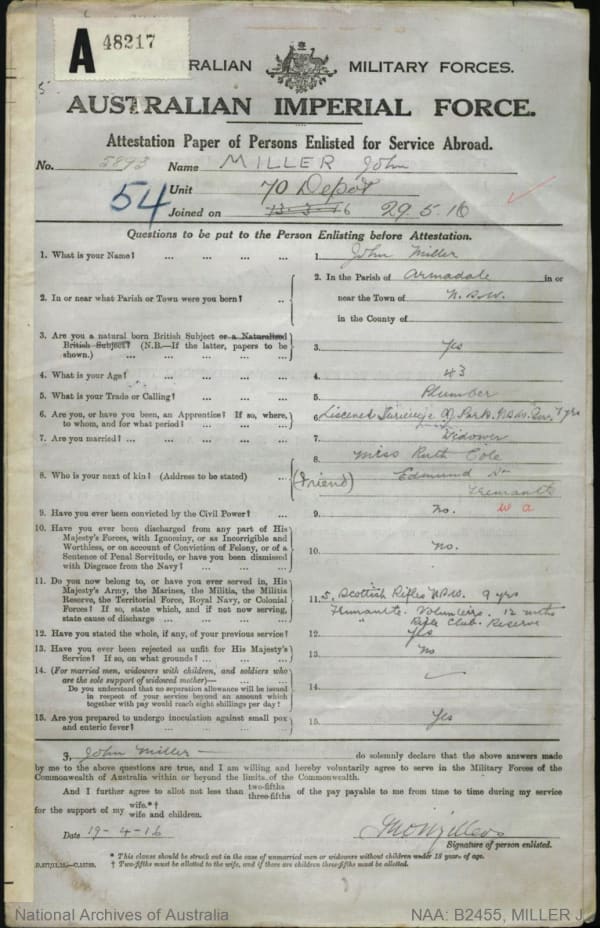 A 48217
AUSTRALIAN MILITARY FORCES.
AUSTRALIAN IMPERIAL FORCE.
Attestation Paper of Persons Enlisted for Service Abroad.
No. 5893 Name MILLER John
54 Unit 70 Depôt
Joined on 13-3-16 29.5.16
Questions to be put to the Person Enlisting before Attestation.
1. What is your Name? ... ... ... ... 1. John Miller
2. In or near what Parish or Town were you born? ... 2. In the Parish of Armadale in or
near the Town of N.S.W.
in the County of
3. Are you a natural born British Subject or a Naturalized
British Subject? (N.B.—If the latter, papers to be
shown.) ... ... ... ... 3. Yes
4. What is your Age? ... ... ... ... 4. 43
5. What is your Trade or Calling? ... ... ... 5. Plumber
6. Are you, or have you been, an Apprentice? If so, where,
to whom, and for what period? ... ... ... 6. N.S.W. 7 yrs
7. Are you married? ... ... ... ... 7. Widower
8. Who is your next of kin? (Address to be stated) ... 8. Miss Ruth Cole
(Friend) Edmund St
Fremantle
9. Have you ever been convicted by the Civil Power? ... 9. No. W A
10. Have you ever been discharged from any part of His
Majesty's Forces, with Ignominy, or as Incorrigible and
Worthless, or on account of Conviction of Felony, or of a
Sentence of Penal Servitude, or have you been dismissed
with Disgrace from the Navy? ... ... ... 10. No.
11. Do you now belong to, or have you ever served in, His
Majesty's Army, the Marines, the Militia, the Militia
Reserve, the Territorial Force, Royal Navy, or Colonial
Forces? If so, state which, and if not now serving,
state cause of discharge ... ... ... 11. 5. Scottish Rifles N.S.W. 9 yrs
Fremantle Volunteers. 12 mths
" Rifle Club. Reserve
12. Have you stated the whole, if any, of your previous service? 12. Yes
13. Have you ever been rejected as unfit for His Majesty's
Service? If so, on what grounds? ... ... ... 13. No
14. (For married men, widowers with children, and soldiers who
are the sole support of widowed mother)—
Do you understand that no separation allowance will be issued
in respect of your service beyond an amount which
together with pay would reach eight shillings per day? 14.
15. Are you prepared to undergo inoculation against small pox
and enteric fever? ... ... ... ... 15. Yes
I, John Miller do solemnly declare that the above answers made
by me to the above questions are true, and I am willing and hereby voluntarily agree to serve in the Military Forces of the
Commonwealth of Australia within or beyond the limits of the Commonwealth.
And I further agree to allot not less than two-fifths three-fifths of the pay payable to me from time to time during my service
for the support of my wife.*† wife and children.
Date 19-4-16
Signature of person enlisted.
* This clause should be struck out in the case of unmarried men or widowers without children under 18 years of age.
† Two-fifths must be allotted to the wife, and if there are children three-fifths must be allotted.
National Archives of Australia NAA: B2455, MILLER J